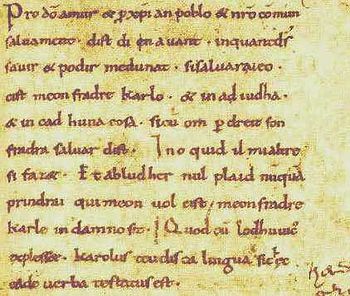 Pro dō amur & ꝑ xp̄ian poblo & nr̄o cōmun
saluament · dist di en auant · inquantdˢ
sauir & podir medunat · sisaluaraieo ·
cist meon fradre karlo · & in ad iudha ·
& in cad huna cosa · sicū om ꝑ dreit son
fradra saluar dist · I no quid il mialtre
si faz& · Et abludher nul plaid nūquā
prindrai qui meon uol cist · meonfradre
karle in damno sit · Quod cū lodhuuic
explesset · karolus teudisca lingua
eade uerba testatus est ·